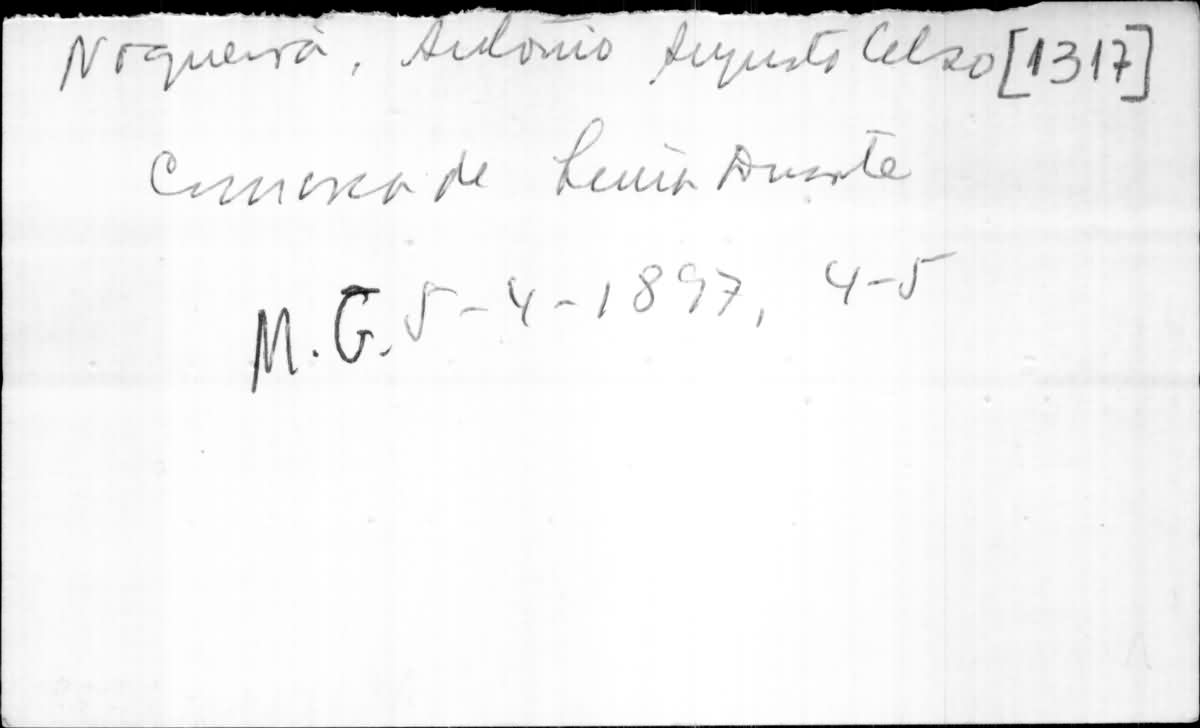 Nogueira, Antônio Augusto Celso [1317]
Comarca de Lima Duarte
M.G. 5-4-1897, 4-5